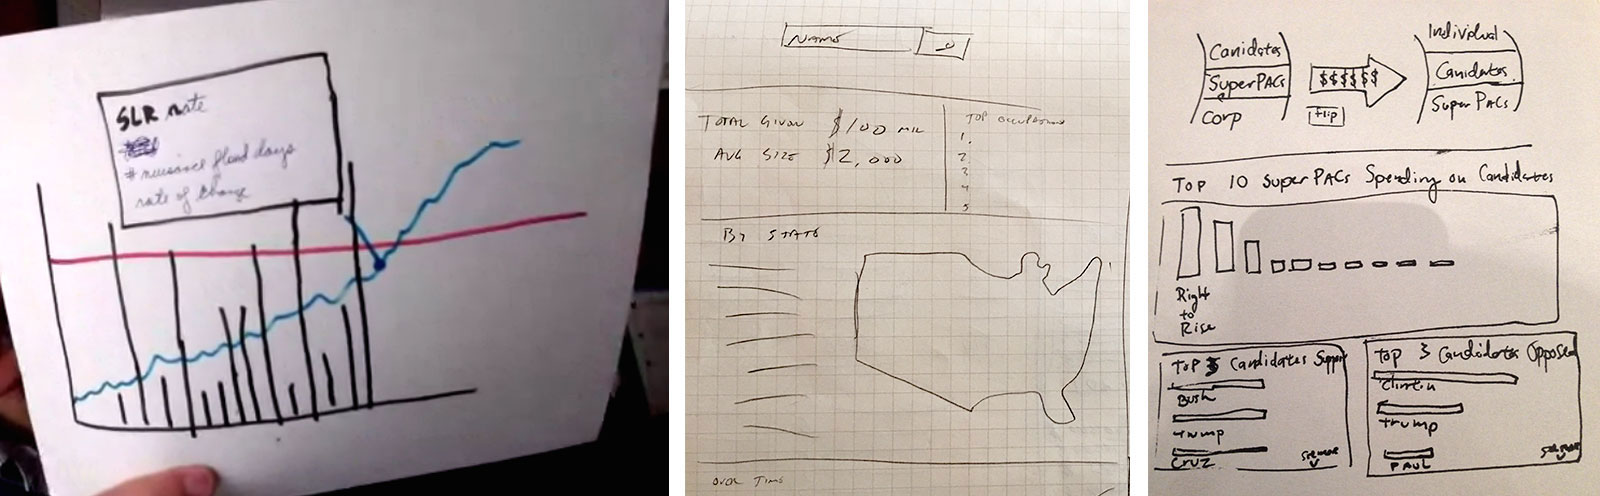 SLR rate
# nuisance flood days
rate of change
Name
TOTAL GIVEN $100 MIL
AVG SIZE $2,000
TOP OCCUPATIONS
1
2
3
4
5
BY STATE
OVER TIME
Canidates
SuperPACs
Corp
$$$$$$
flip
Individual
Canidates
SuperPACs
TOP 10 SuperPACs Spending on Candidates
Right
to
Rise
TOP 3 Candidates Support
Bush
Trump
Cruz
see more
Top 3 Candidates Opposed
Clinton
Trump
PAUL
see more